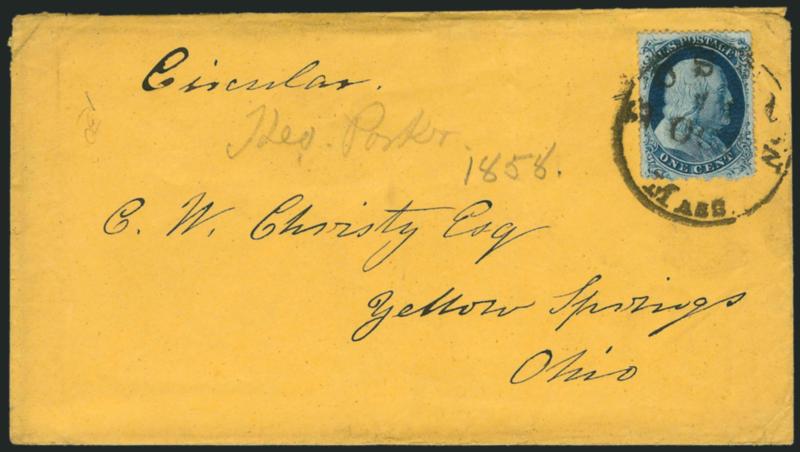 Circular.
U.S. POSTAGE
ONE CENT
MASS.
Theo. Parker
1858.
C. W. Christy Esq
Yellow Springs
Ohio